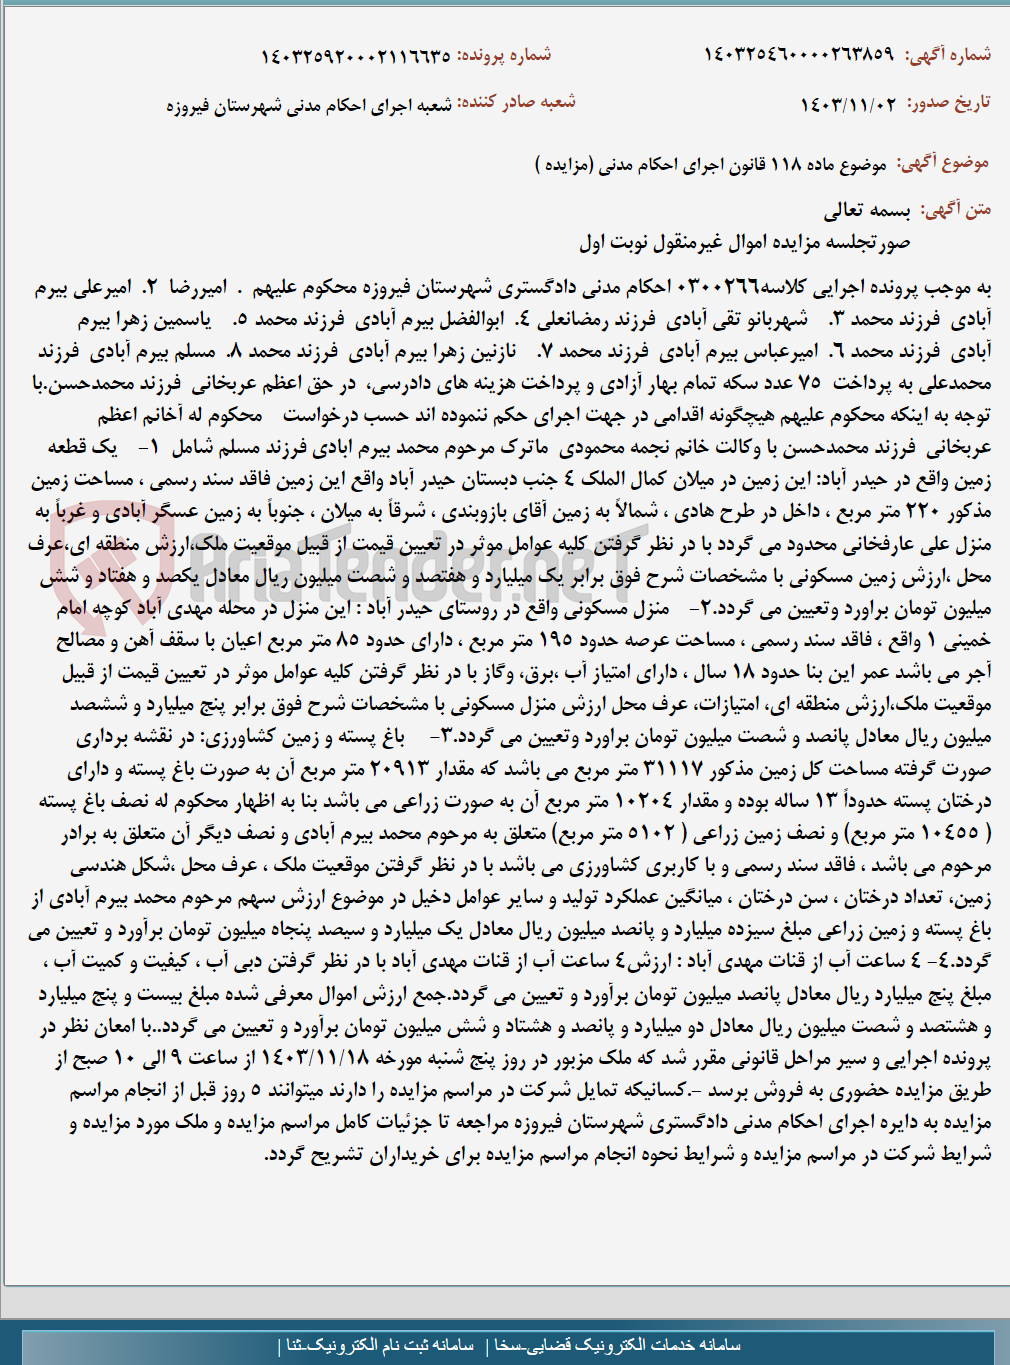 شماره آگهی: ۱۴۰۳۲۵۴۶۰۰۰۰۲۶۳۸۵۹ شماره پرونده: ۱۴۰۳۲۵۹۲۰۰۰۲۱۱۶۶۳۵
تاریخ صدور: ۱۴۰۳/۱۱/۰۲ شعبه صادر کننده: شعبه اجرای احکام مدنی شهرستان فیروزه
موضوع آگهی: موضوع ماده ۱۱۸ قانون اجرای احکام مدنی (مزایده )
متن آگهی: بسمه تعالی
صورتجلسه مزایده اموال غیرمنقول نوبت اول
به موجب پرونده اجرایی کلاسه۰۳۰۰۲۶۶ احکام مدنی دادگستری شهرستان فیروزه محکوم علیهم . امیررضا ۲. امیرعلی بیرم
آبادی فرزند محمد ۳. شهربانو تقی آبادی فرزند رمضانعلی ۴. ابوالفضل بیرم آبادی فرزند محمد ۵. یاسمین زهرا بیرم
آبادی فرزند محمد ۶. امیرعباس بیرم آبادی فرزند محمد ۷. نازنین زهرا بیرم آبادی فرزند محمد ۸. مسلم بیرم آبادی فرزند
محمدعلی به پرداخت ۷۵ عدد سکه تمام بهار آزادی و پرداخت هزینه های دادرسی، در حق اعظم عربخانی فرزند محمدحسن.با
توجه به اینکه محکوم علیهم هیچگونه اقدامی در جهت اجرای حکم ننموده اند حسب درخواست محکوم له آخانم اعظم
عربخانی فرزند محمدحسن با وکالت خانم نجمه محمودی ماترک مرحوم محمد بیرم ابادی فرزند مسلم شامل ۱- یک قطعه
زمین واقع در حیدر آباد: این زمین در میلان کمال الملک ۴ جنب دبستان حیدر آباد واقع این زمین فاقد سند رسمی ، مساحت زمین
مذکور ۲۲۰ متر مربع ، داخل در طرح هادی ، شمالاً به زمین آقای بازوبندی ، شرقاً به میلان ، جنوباً به زمین عسگر آبادی و غرباً به
منزل علی عارفخانی محدود می گردد با در نظر گرفتن کلیه عوامل موثر در تعیین قیمت از قبیل موقعیت ملک،ارزش منطقه ای،عرف
محل ،ارزش زمین مسکونی با مشخصات شرح فوق برابر یک میلیارد و هفتصد و شصت میلیون ریال معادل یکصد و هفتاد و شش
میلیون تومان براورد وتعیین می گردد.۲- منزل مسکونی واقع در روستای حیدر آباد : این منزل در محله مهدی آباد کوچه امام
خمینی ۱ واقع ، فاقد سند رسمی ، مساحت عرصه حدود ۱۹۵ متر مربع ، دارای حدود ۸۵ متر مربع اعیان با سقف آهن و مصالح
آجر می باشد عمر این بنا حدود ۱۸ سال ، دارای امتیاز آب ،برق، وگاز با در نظر گرفتن کلیه عوامل موثر در تعیین قیمت از قبیل
موقعیت ملک،ارزش منطقه ای، امتیازات، عرف محل ارزش منزل مسکونی با مشخصات شرح فوق برابر پنج میلیارد و ششصد
میلیون ریال معادل پانصد و شصت میلیون تومان براورد وتعیین می گردد.۳- باغ پسته و زمین کشاورزی: در نقشه برداری
صورت گرفته مساحت کل زمین مذکور ۳۱۱۱۷ متر مربع می باشد که مقدار ۲۰۹۱۳ متر مربع آن به صورت باغ پسته و دارای
درختان پسته حدوداً ۱۳ ساله بوده و مقدار ۱۰۲۰۴ متر مربع آن به صورت زراعی می باشد بنا به اظهار محکوم له نصف باغ پسته
( ۱۰۴۵۵ متر مربع) و نصف زمین زراعی ( ۵۱۰۲ متر مربع) متعلق به مرحوم محمد بیرم آبادی و نصف دیگر آن متعلق به برادر
مرحوم می باشد ، فاقد سند رسمی و با کاربری کشاورزی می باشد با در نظر گرفتن موقعیت ملک ، عرف محل ،شکل هندسی
زمین، تعداد درختان ، سن درختان ، میانگین عملکرد تولید و سایر عوامل دخیل در موضوع ارزش سهم مرحوم محمد بیرم آبادی از
باغ پسته و زمین زراعی مبلغ سیزده میلیارد و پانصد میلیون ریال معادل یک میلیارد و سیصد پنجاه میلیون تومان برآورد و تعیین می
گردد.۴- ۴ ساعت آب از قنات مهدی آباد : ارزش۴ ساعت آب از قنات مهدی آباد با در نظر گرفتن دبی آب ، کیفیت و کمیت آب ،
مبلغ پنج میلیارد ریال معادل پانصد میلیون تومان برآورد و تعیین می گردد.جمع ارزش اموال معرفی شده مبلغ بیست و پنج میلیارد
و هشتصد و شصت میلیون ریال معادل دو میلیارد و پانصد و هشتاد و شش میلیون تومان برآورد و تعیین می گردد..با امعان نظر در
پرونده اجرایی و سیر مراحل قانونی مقرر شد که ملک مزبور در روز پنج شنبه مورخه ۱۴۰۳/۱۱/۱۸ از ساعت ۹ الی ۱۰ صبح از
طریق مزایده حضوری به فروش برسد .-کسانیکه تمایل شرکت در مراسم مزایده را دارند میتوانند ۵ روز قبل از انجام مراسم
مزایده به دایره اجرای احکام مدنی دادگستری شهرستان فیروزه مراجعه تا جزئیات کامل مراسم مزایده و ملک مورد مزایده و
شرایط شرکت در مراسم مزایده و شرایط نحوه انجام مراسم مزایده برای خریداران تشریح گردد.
AriaTender.neT
سامانه خدمات الکترونیک قضایی-سخا | سامانه ثبت نام الکترونیک-ثنا |